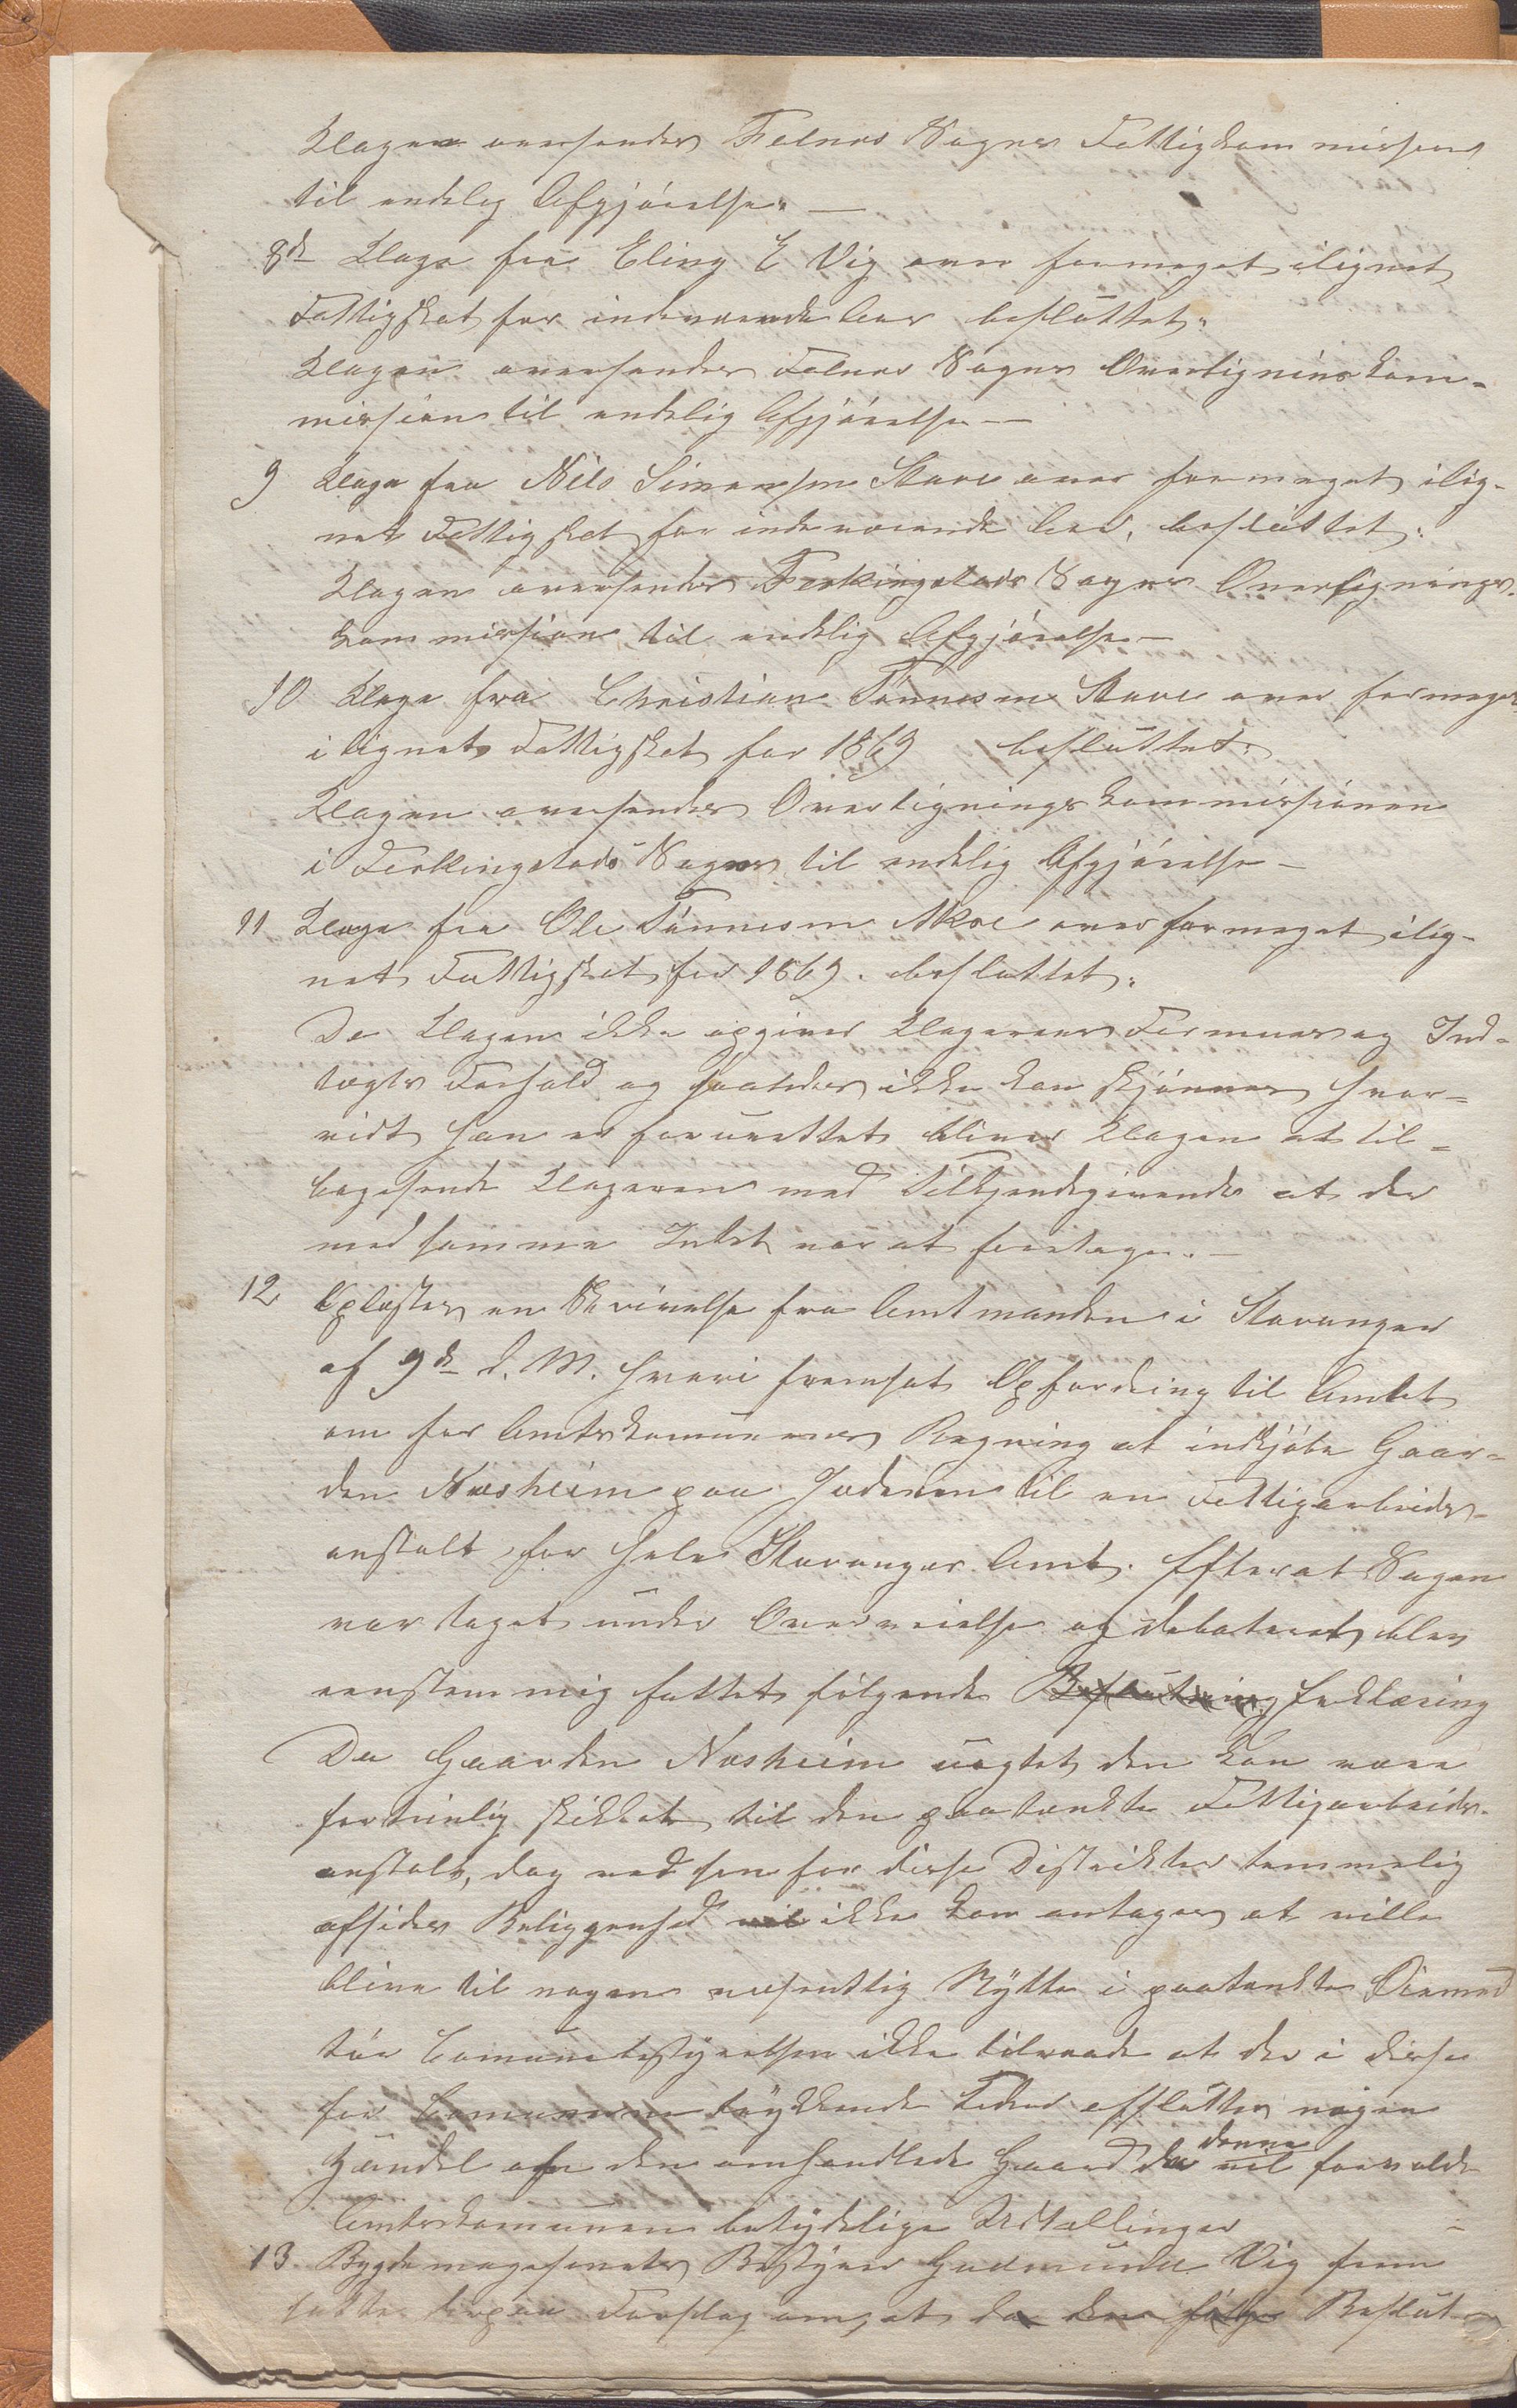 Klagen oversendes Falnes Sogns Fattigkommission
til endelig Afgjörelse. —
8de Klage fra Eling E Vig over formeget ilignet
Fattigskat for indeværende Aar besluttet:
Klagen oversendes Falnes Sogns Overlignins kom-
mission til endelig Afgjörelse —
9 Klage fra Nils Simonsen Stave over formeget ilig-
net Fattigskat for indeværende Aar, besluttet:
Klagen oversendes Ferkingstads Sogns Overlignings-
kommission til endelig Afgjörelse —
10 Klage fra Christian Tönnesen Stave over formeget
ilignet Fattigskat for 1869 besluttet:
Klagen oversendes Overligningskommissionen
i Ferkingstads Sogn til endelig Afgjörelse —
11 Klage fra Ole Tönnesen Akre over formeget ilig-
net Fattigskat for 1869. besluttet:
Da Klagen ikke opgiver Klagerens Formues og Ind-
tægts Forhold og saaledes ikke kan skjönnes hvor-
vidt han er forurettet bliver Klagen at til-
bagesende Klageren med Tilkjendegivende at der
med samme Intet var at foretage. —
12 Oplæstes en Skrivelse fra Amtmanden i Stavanger
af 9de d. M. hvori fremsat Opfordring til Amtet
om for Amtskommunens Regning at indkjöbe Gaar-
den Næsheim paa Jæderen til en Fattigarbeids-
anstalt for hele Stavanger Amt. Efterat Sagen
var taget under Overveielse og debateret blev
eenstemmig fattet fölgende Beslutning Erklæring
Da Gaarden Næsheim uagtet den kan være
fortrinlig skikket til den paatænkte Fattigarbeids-
anstalt, dog ved sin for disse Distrikter temmelig
afsides Beliggenhed vil ikke kan antages at ville
blive til nogen væsentlig Nytte i paatænkte Öiemed
tör Comunebestyrelsen ikke tilraade at der i disse
for Comunerne trykkende Tider afsluttes nogen
Handel om den omhandlede Gaard da denne vil forvolde
Amtskomunen betydelige Udtællinger —
13. Bygdemagasinets Bestyrer Gudmund Vig frem
satte Forslag om, at da den Beslut-